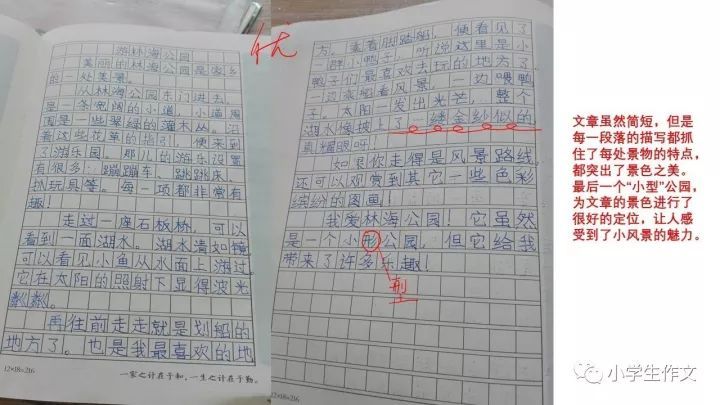 游林海公园
美丽的林海公园是家乡
的一处美景。
从林海公园东门进去,
是一条宽阔的小道,小道周
围是一些翠绿的灌木丛。沿
着这些花草的指引,便来到
了游乐园。那儿的游乐设置
有很多:蹦蹦车、跳跳床、
抓玩具等。每一项都非常有
趣!
走过一座石板桥,可以
看到一面湖水。湖水清如镜,
可以看见小鱼从水面上游过。
它在太阳的照射下显得波光
粼粼。
再往前走走就是划船的
地方了。也是我最喜欢的地
12×18=216
一家之计在于和,一生之计在于勤。
优
方。
着脚踏船,便看见了
一群小鸭子,听说这里是小
鸭子们最喜欢去玩的地方了
一边来船看风景,一边喂鸭
子。太阳一发出光芒,整个
湖水像披上了一缕金纱似的
真耀眼呀!
如果你走得是风景路线,
还可以观赏到其它一些色彩
缤纷的图画!
我爱林海公园!它虽然
是一个小形公园,但它给我
带来了许多乐趣!
型
12×18=216
文章虽然简短,但是
每一段落的描写都抓
住了每处景物的特点,
都突出了景色之美。
最后一个“小型”公园,
为文章的景色进行了
很好的定位,让人感
受到了小风景的魅力。
小学生作文